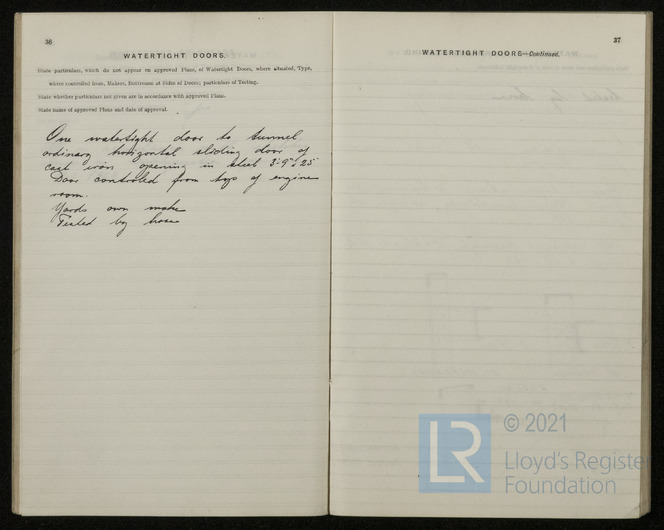 36
WATERTIGHT DOORS.
State particulars, which do not appear on approved Plans, of Watertight Doors, where situated, Type,
where controlled from, Makers, Buttresses at Sides of Doors; particulars of Testing.
State whether particulars not given are in accordance with approved Plans.
State name of approved Plans and date of approval.
One watertight door to tunnel
ordinary horizontal sliding door of
cast iron opening in steel 3'-9" x
Door controlled from top of engine
room.
Yards own make
Tested by hose
37
WATERTIGHT DOORS—Continued.
LR
© 2021
Lloyd's Register
Foundation